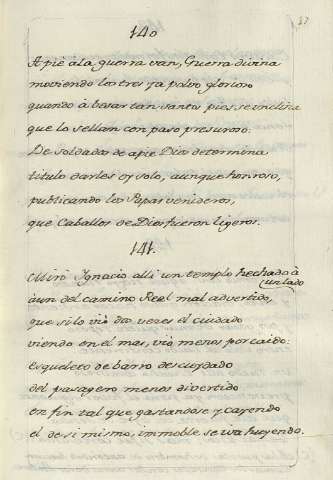 140
A pie à la guerra van, Guerra divina
moviendo los tres ya polvo glorioso
quando à besar tan santos pies se inclina
que lo sellan con paso presuroso.
De soldados de a pie Dios determina
titulo darles oy solo, aunque honroso,
publicando los Papas venideros,
que Caballos de Dios fueron ligeros.
141.
Miró Ignacio alli un templo hechado à
un lado
àun del camino Real mal advertido,
que si lo viò dos veces el cuidado
viendo en el mas, viò menos por caido:
Esqueleto de barro descuydado
del pasagero menos divertido
en fin tal que gastandose y cayendo
el de si mismo, immoble se iva huyendo.